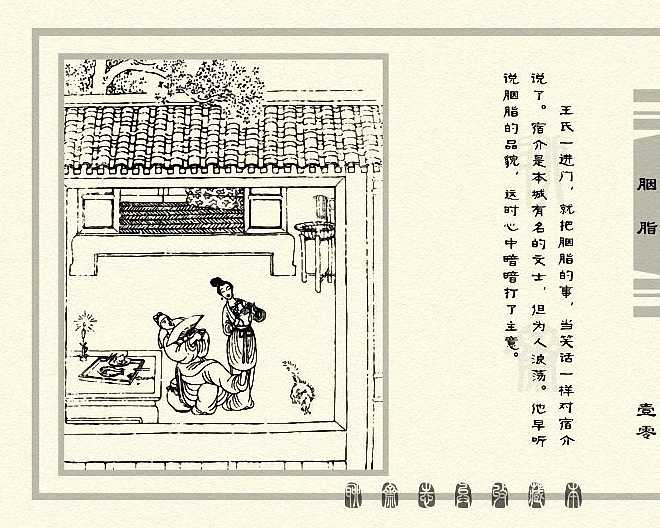 胭脂
壹零
王氏一进门，就把胭脂的事，当笑话一样对宿介
说了。宿介是本城有名的文士，但为人浪荡。他早听
说胭脂的品貌，这时心中暗暗打了主意。